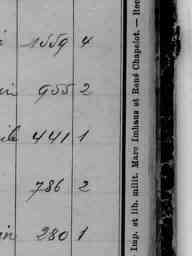 1559 4
in 955 2
ile 441 1
786 2
in 280 1
Imp. et lib. milit. Marc Imhaus et René Chapelot. —